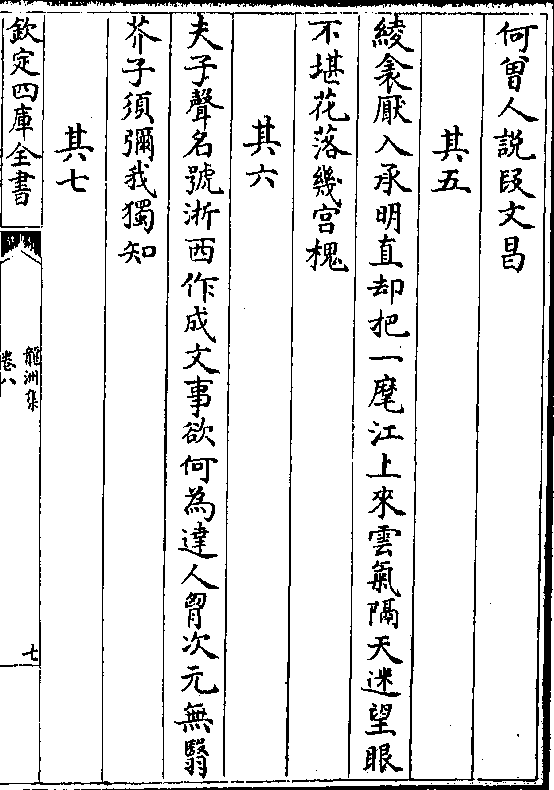 何曾人說段文昌
其五
綾衾厭入承明直却把一麾江上來雲氣隔天迷望眼
不堪花落幾宫槐
其六
夫子聲名號浙西作成文事欲何為達人胷次元無翳
芥子須彌我獨知
其七
欽定四庫全書
龍洲集
卷八
七